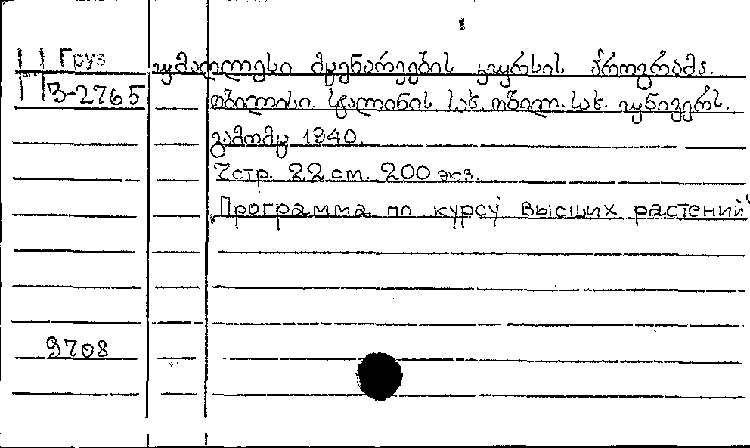 Груз
უმაღლესი მცენარეების კურსის პროგრამა.
П З-2765
თბილისი. სტალინის სახ. თბილ. სახ. უნივერს.
გამომც 1940.
7 стр. 22 см. 200 экз.
„Программа по курсу высших растений"
9708